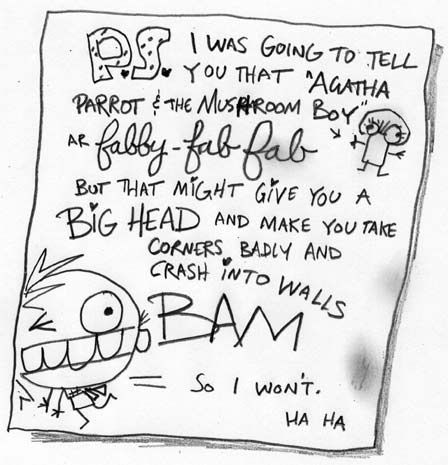 P.S. I WAS GOING TO TELL
YOU THAT "AGATHA
PARROT & THE MUSHROOM BOY"
AR fabby-fab fab
BUT THAT MIGHT GIVE YOU A
BIG HEAD AND MAKE YOU TAKE
CORNERS BADLY AND
CRASH INTO WALLS
BAM
SO I WON'T.
HA HA